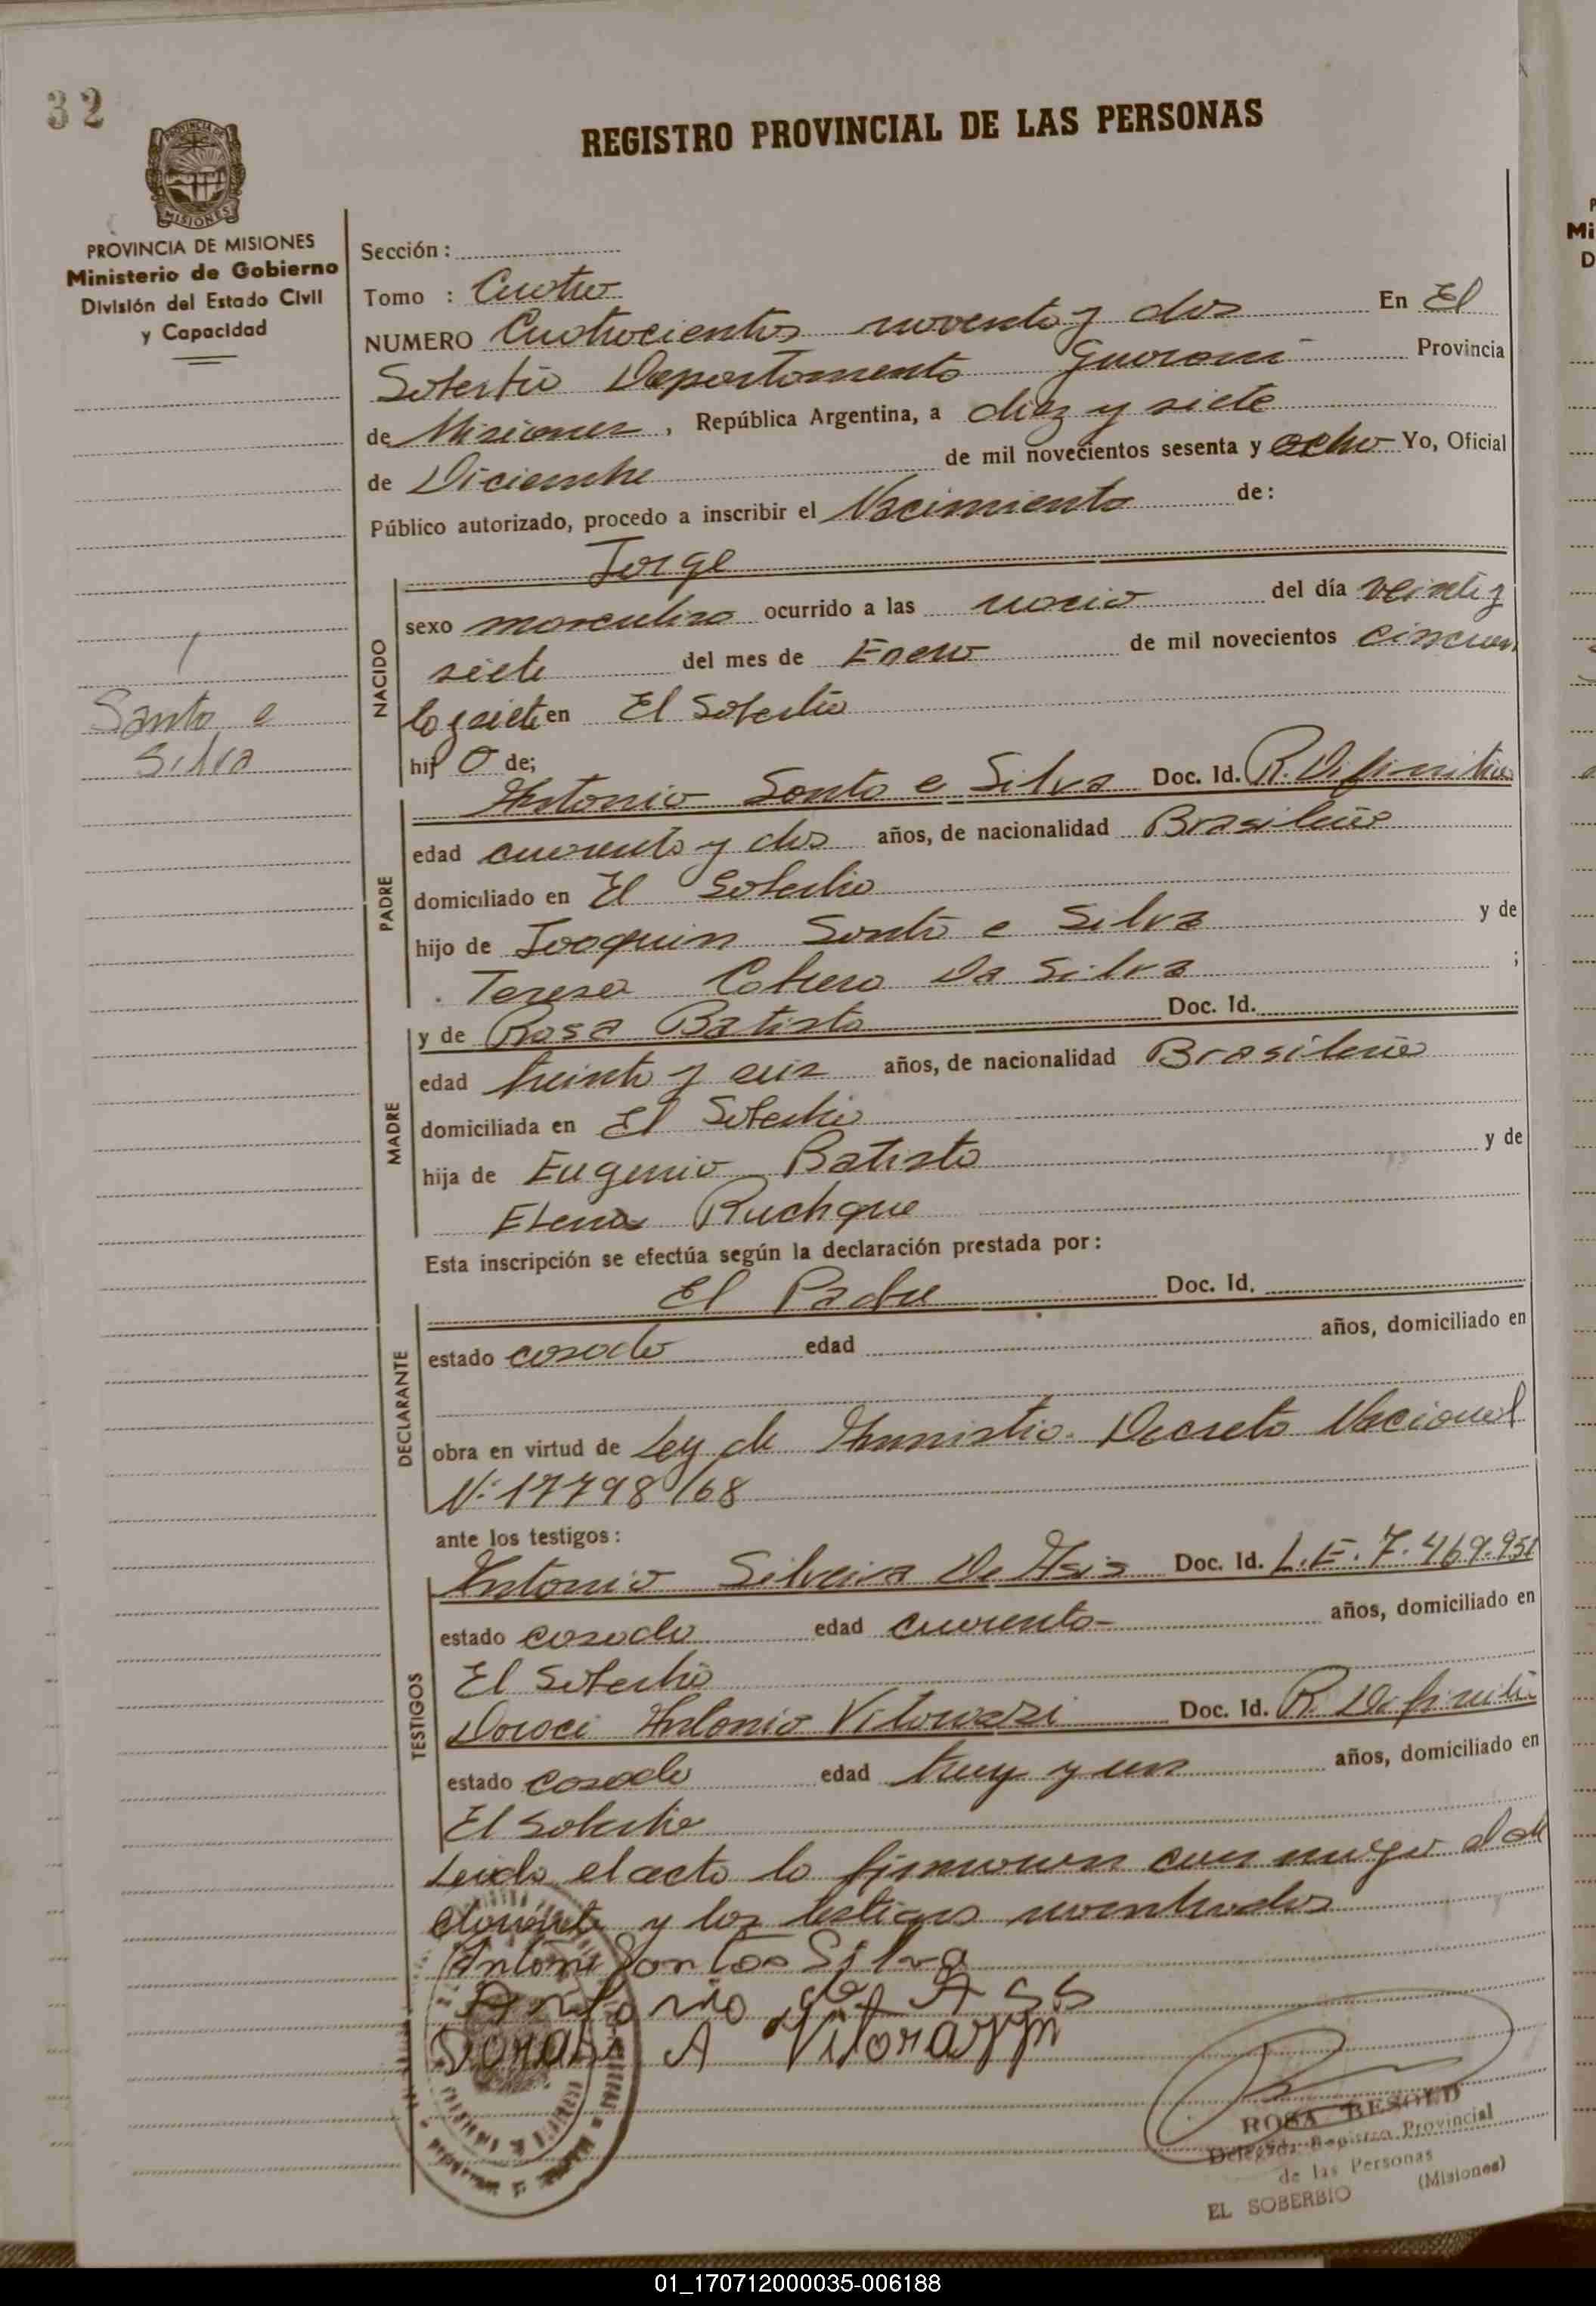 32
REGISTRO PROVINCIAL DE LAS PERSONAS
PROVINCIA DE
MISIONES
PROVINCIA DE MISIONES
Ministerio de Gobierno
División del Estado Civil
y Capacidad
Santo e
Silva
Sección :
Tomo : Cuatro
NUMERO Cuatrocientos noventa y dos En El
Soberbio Departamento Guarani Provincia
de Misiones, República Argentina, a diez y siete
de Diciembre de mil novecientos sesenta y ocho Yo, Oficial
Público autorizado, procedo a inscribir el Nacimiento de:
NACIDO
Jorge
sexo masculino ocurrido a las del día veinte y
siete del mes de Enero de mil novecientos cincuen
ta y siete en El Soberbio
hij o de;
PADRE
Antonio Santo e Silva Doc. Id. R. Difinitiva
edad cuarenta y dos años, de nacionalidad Brasileño
domiciliado en El Soberbio
hijo de Joaquin Santo e Silva y de
Teresa Da Silva ;
MADRE
y de Rosa Batista Doc. Id.
edad treinta y seis años, de nacionalidad Brasileña
domiciliada en El Soberbio
hija de Eugenio Batista y de
Elena Ruchque
Esta inscripción se efectúa según la declaración prestada por :
DECLARANTE
El Padre Doc. Id.
estado casado edad años, domiciliado en
obra en virtud de Ley de Amnistia. Decreto Nacional
Nº 17798/68
ante los testigos :
TESTIGOS
Antonio Silveira De Asis Doc. Id. L.E. 7.469.951
estado casado edad cuarenta años, domiciliado en
El Soberbio
Antonio Doc. Id. R. Difiniti
estado casado edad y un años, domiciliado en
El Soberbio
Leida el acta la firmaron con migo el de
y los testigos nombrados
Antonio Santos Silva
Antonio
A Vitorazzi
ROSA BESOLD
Delegada Registro Provincial
de las Personas
EL SOBERBIO (Misiones)
01_170712000035-006188